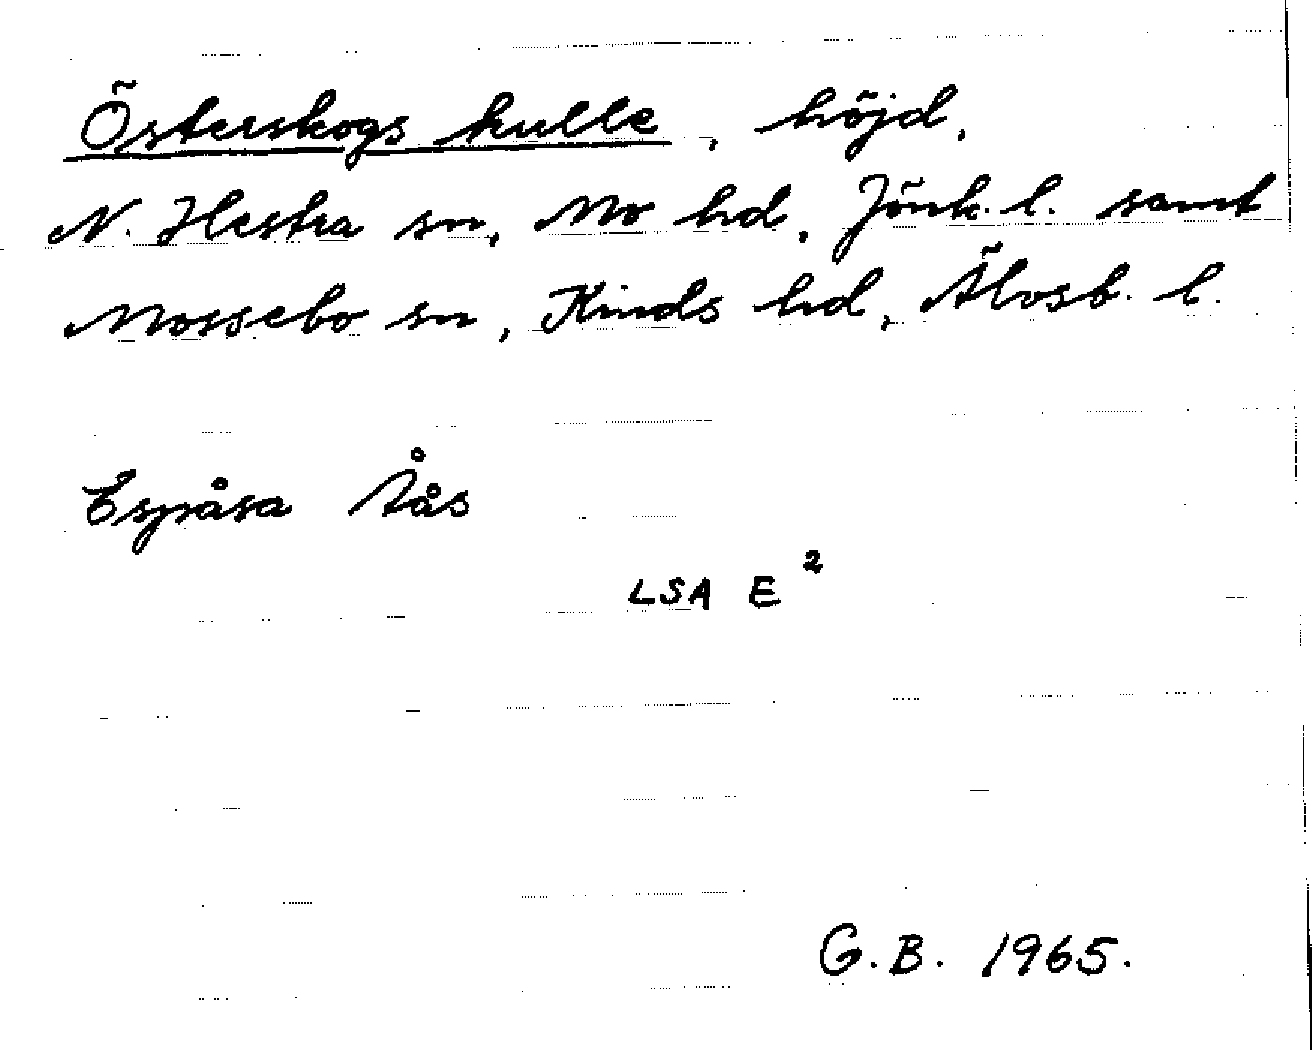 Österskogs kulle, höjd,
N. Hestra sn, Mo hd, Jönk. l. samt
Mossebo sn, Kinds hd, Älvsb. l.
Espåsa Åås
LSA E²
G.B. 1965.